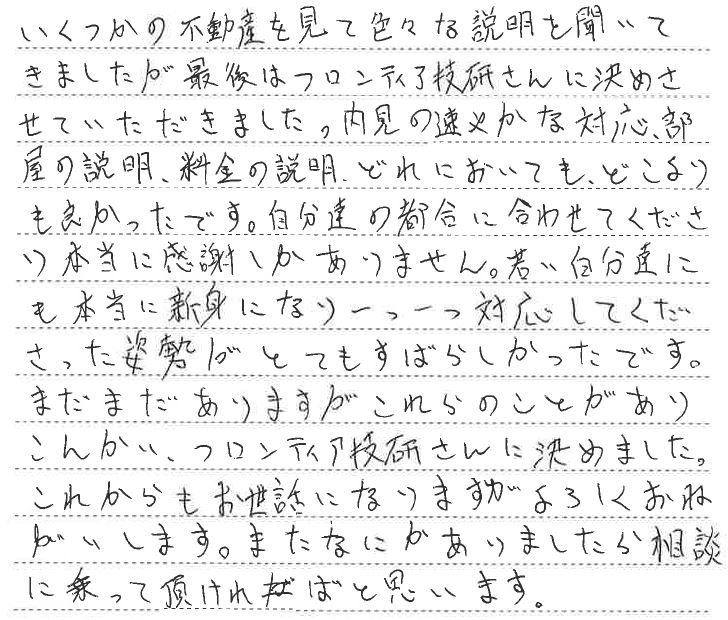 いくつかの不動産を見て色々な説明を聞いて
きましたが最後はフロンティア技研さんに決めさ
せていただきました。内見の速やかな対応、部
屋の説明、料金の説明、どれにおいても、どこより
も良かったです。自分達の都合に合わせてくださ
り本当に感謝しかありません。若い自分達に
も本当に新身になり一つ一つ対応してくだ
さった姿勢がとてもすばらしかったです。
まだまだありますがこれらのことがあり
こんかい、フロンティア技研さんに決めました。
これからもお世話になりますがよろしくおね
がいします。またなにかありましたら相談
に乗って頂ければと思います。